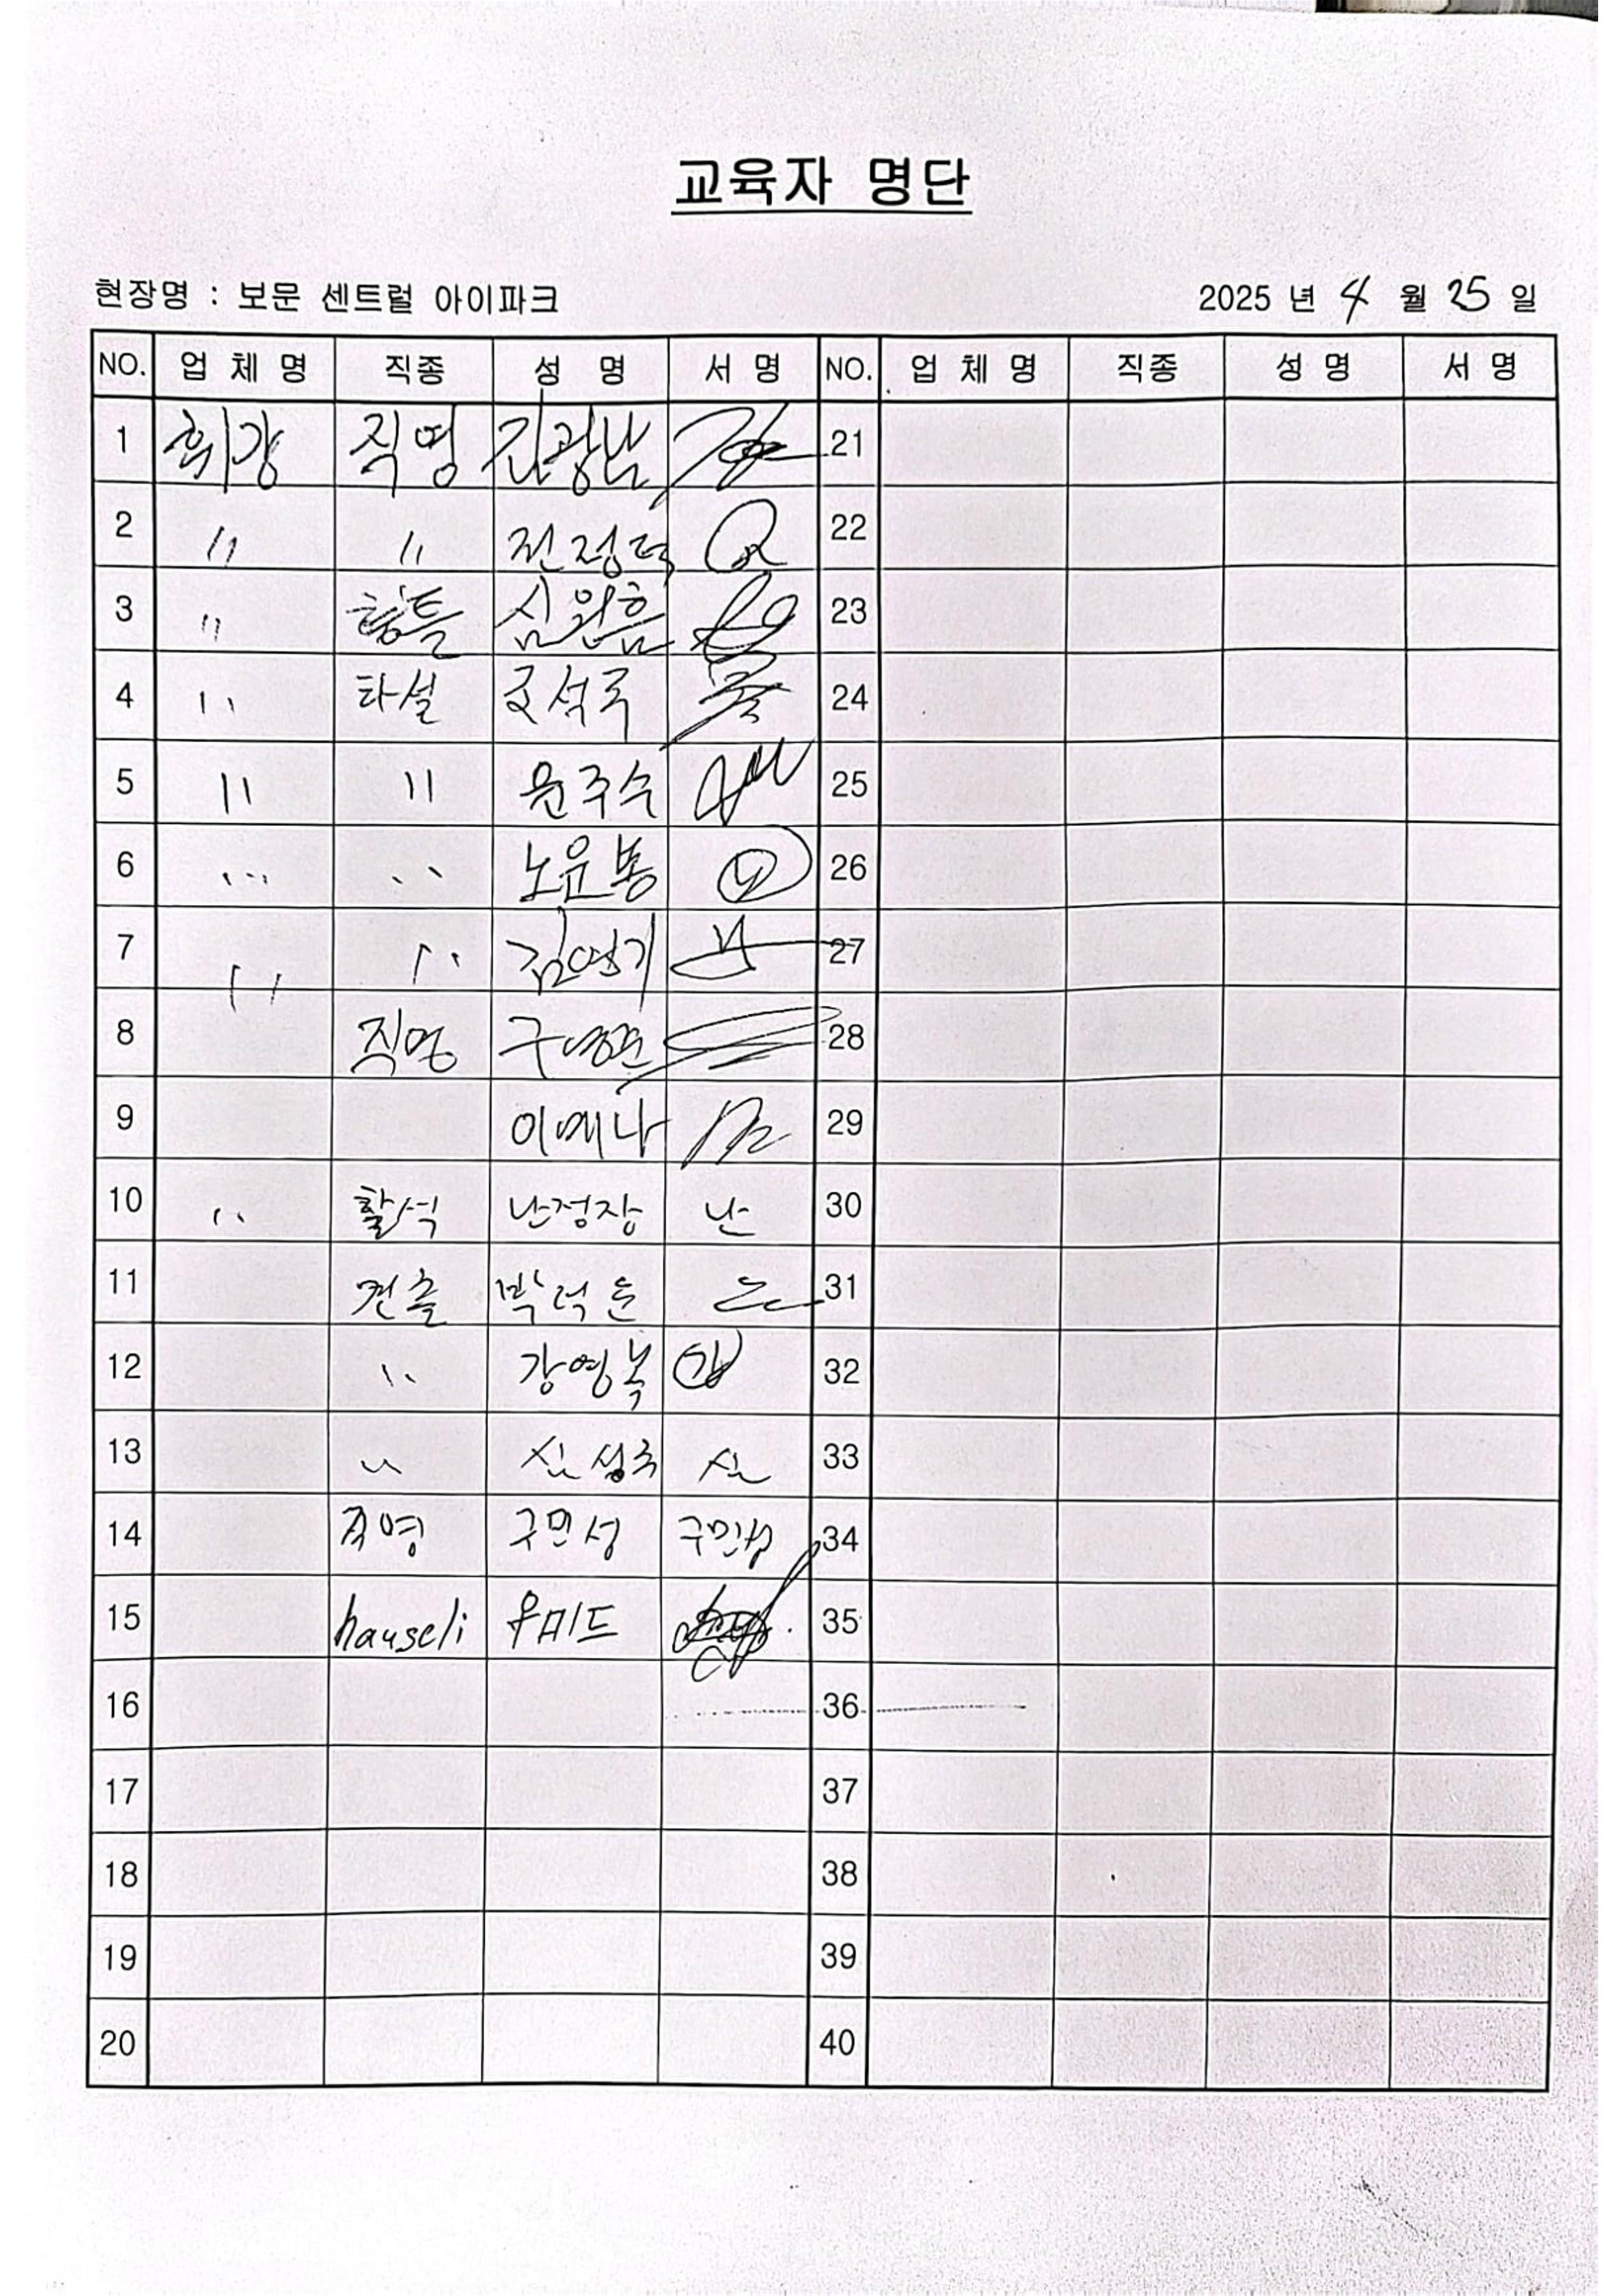 교육자 명단
현장명 : 보문 센트럴 아이파크 2025 년 4 월 25 일
NO. 업 체 명 직종 성 명 서 명 NO. 업 체 명 직종 성 명 서 명
1 휘강 직영 김광남 21
2 〃 〃 전정덕 22
3 〃 형틀 심원흠 23
4 〃 타설 조석국 24
5 〃 〃 윤주수 25
6 〃 〃 노윤봉 26
7 〃 〃 김영기 27
8 직영 28
9 이예나 29
10 〃 할석 난정장 난 30
11 견출 박덕순 31
12 〃 강영복 32
13 〃 신성국 신 33
14 직영 구민성 구민성 34
15 hauseli 우미드 35
16 36
17 37
18 38
19 39
20 40